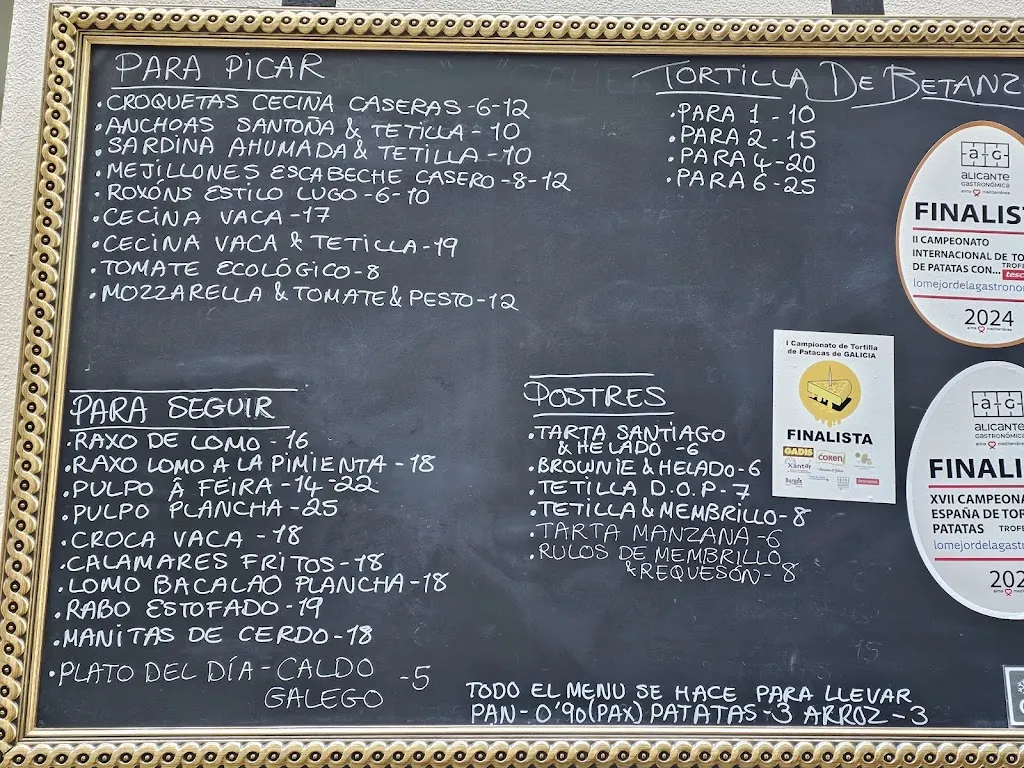 PARA PICAR
• CROQUETAS CECINA CASERAS - 6-12
• ANCHOAS SANTOÑA & TETILLA - 10
• SARDINA AHUMADA & TETILLA - 10
• MEJILLONES ESCABECHE CASERO - 8-12
• ROXÓNS ESTILO LUGO - 6-10
• CECINA VACA - 17
• CECINA VACA & TETILLA - 19
• TOMATE ECOLÓGICO - 8
• MOZZARELLA & TOMATE & PESTO - 12
TORTILLA DE BETANZ
• PARA 1 - 10
• PARA 2 - 15
• PARA 4 - 20
• PARA 6 - 25
PARA SEGUIR
• RAXO DE LOMO - 16
• RAXO LOMO A LA PIMIENTA - 18
• PULPO Á FEIRA - 14-22
• PULPO PLANCHA - 25
• CROCA VACA - 18
• CALAMARES FRITOS - 18
• LOMO BACALAO PLANCHA - 18
• RABO ESTOFADO - 19
• MANITAS DE CERDO - 18
• PLATO DEL DÍA - CALDO
GALEGO - 5
POSTRES
• TARTA SANTIAGO
& HELADO - 6
• BROWNIE & HELADO - 6
• TETILLA D.O.P - 7
• TETILLA & MEMBRILLO - 8
• TARTA MANZANA - 6
• RULOS DE MEMBRILLO
& REQUESÓN - 8
15
TODO EL MENU SE HACE PARA LLEVAR
PAN - 0'90 (PAX) PATATAS - 3 ARROZ - 3
I Campionato de Tortilla
de Patacas de GALICIA
FINALISTA
GADIS
COREN
xantar
a-G
ALICANTE
GASTRONÓMICA
alma mediterránea
FINALIS
II CAMPEONATO
INTERNACIONAL DE TO
DE PATATAS CON... TROFE
tesc
lomejordelagastronom
2024
alma mediterránea
a-G
ALICANTE
GASTRONÓMICA
alma mediterránea
FINALI
XVII CAMPEONA
ESPAÑA DE TOR
PATATAS TROFE
lomejordelagast
202